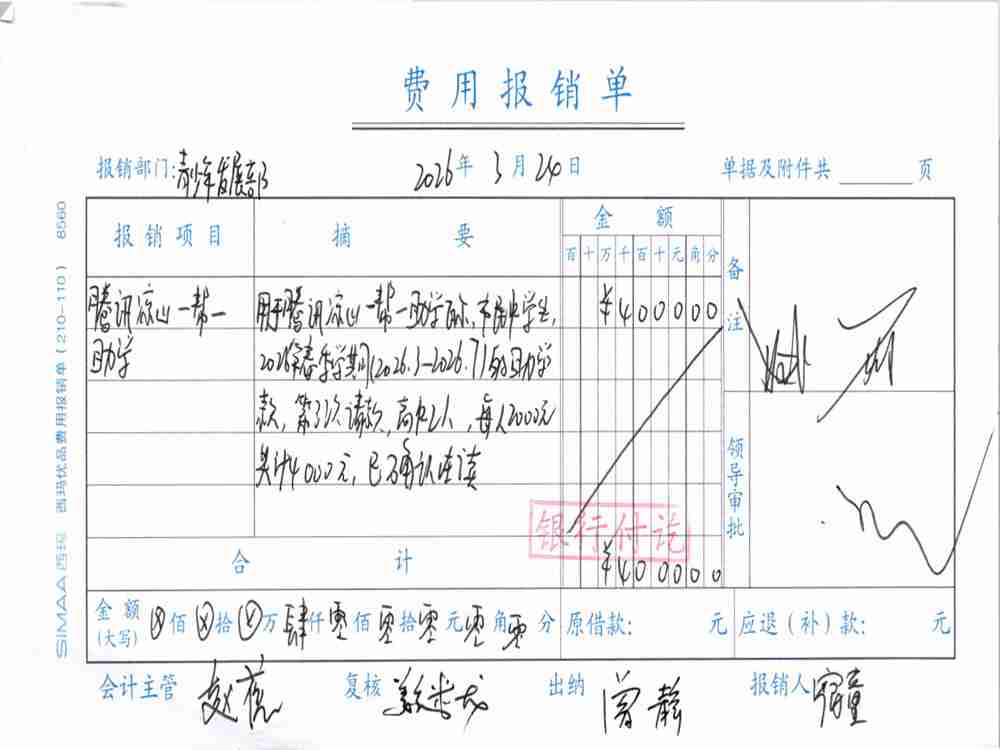 费用报销单
报销部门:青少年发展部 2026年3月24日 单据及附件共 页
报销项目 摘要 金额 备注
百十万千百十元角分
腾讯凉山一帮一 用于腾讯凉山一帮一助学 中学生, ¥400000
助学 2026年春季学期(2026.3-2026.7)的助学
款,第3次请款,高中2人,每人2000元
共计4000元,已 确认在读
领导审批
银行付讫
合计 ¥400000
金额(大写) ⊗佰⊗拾⊗万肆仟零佰零拾零元零角零分 原借款: 元 应退(补)款: 元
会计主管 赵 复核 出纳 曾静 报销人 宿童
SIMAA西玛 西玛优品费用报销单(210-110) 8560